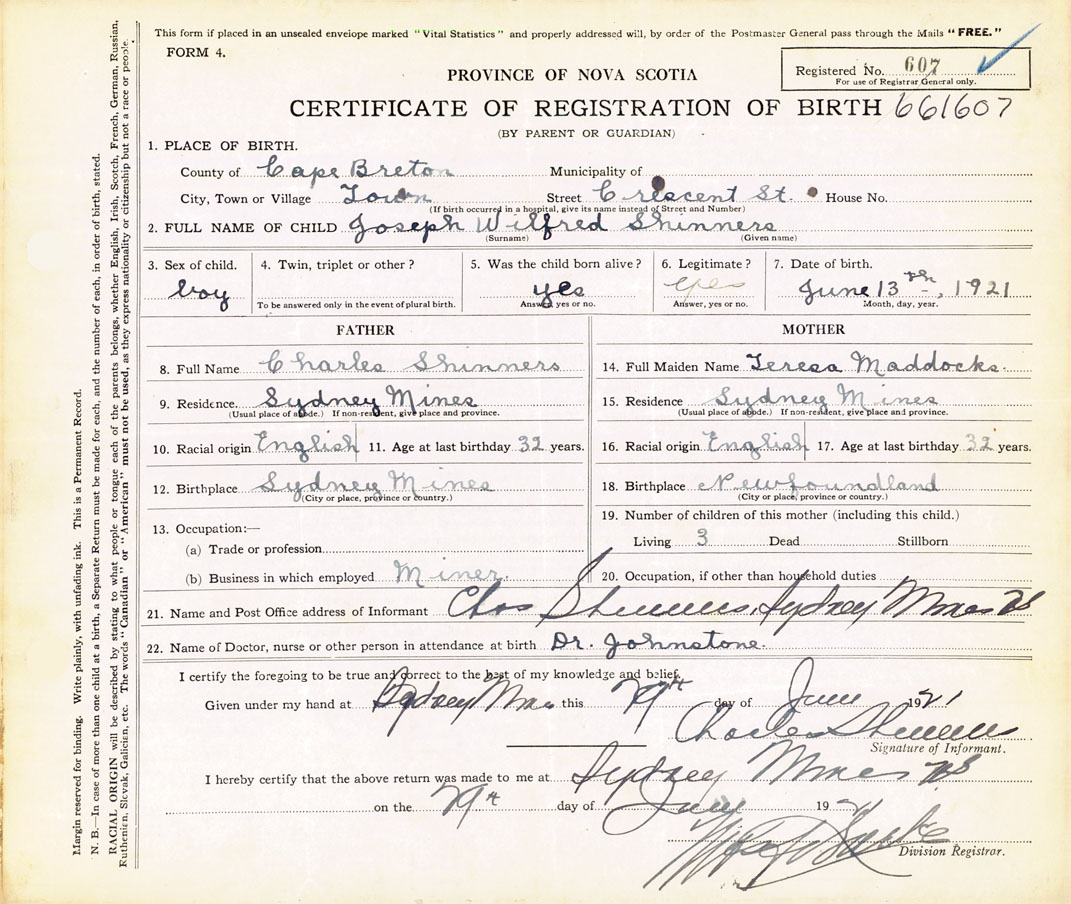 This form if placed in an unsealed envelope marked "Vital Statistics" and properly addressed will, by order of the Postmaster General pass through the Mails "FREE."
FORM 4.
Registered No. 607
For use of Registrar General only.
PROVINCE OF NOVA SCOTIA
CERTIFICATE OF REGISTRATION OF BIRTH 661607
(BY PARENT OR GUARDIAN)
1. PLACE OF BIRTH.
County of Cape Breton Municipality of
City, Town or Village Town Street Crescent St. House No.
(If birth occurred in a hospital, give its name instead of Street and Number)
2. FULL NAME OF CHILD Joseph Wilfred Shinners
(Surname) (Given name)
3. Sex of child. 4. Twin, triplet or other? 5. Was the child born alive? 6. Legitimate? 7. Date of birth.
boy yes yes June 13th, 1921
To be answered only in the event of plural birth. Answer, yes or no. Answer, yes or no. Month, day, year.
FATHER MOTHER
8. Full Name Charles Shinners 14. Full Maiden Name Teresa Maddocks.
9. Residence. Sydney Mines 15. Residence Sydney Mines
(Usual place of abode.) If non-resident, give place and province. (Usual place of abode.) If non-resident, give place and province.
10. Racial origin English 11. Age at last birthday 32 years. 16. Racial origin English 17. Age at last birthday 32 years.
12. Birthplace Sydney Mines 18. Birthplace Newfoundland
(City or place, province or country.) (City or place, province or country.)
13. Occupation:— 19. Number of children of this mother (including this child.)
(a) Trade or profession Living 3 Dead Stillborn
(b) Business in which employed Miner. 20. Occupation, if other than household duties
21. Name and Post Office address of Informant Chas Shinners, Sydney Mines NS
22. Name of Doctor, nurse or other person in attendance at birth Dr. Johnstone.
I certify the foregoing to be true and correct to the best of my knowledge and belief.
Given under my hand at Sydney Mines this 29th day of June 1921
Charles Shinners
Signature of Informant.
I hereby certify that the above return was made to me at Sydney Mines NS
on the 29th day of June 1921
Division Registrar.
Margin reserved for binding. Write plainly, with unfading ink. This is a Permanent Record.
N. B.—In case of more than one child at a birth, a Separate Return must be made for each, and the number of each, in order of birth, stated.
RACIAL ORIGIN will be described by stating to what people or tongue each of the parents belongs, whether English, Irish, Scotch, French, German, Russian,
Ruthenian, Slovak, Galician, etc. The words "Canadian" or "American" must not be used, as they express nationality or citizenship but not a race or people.